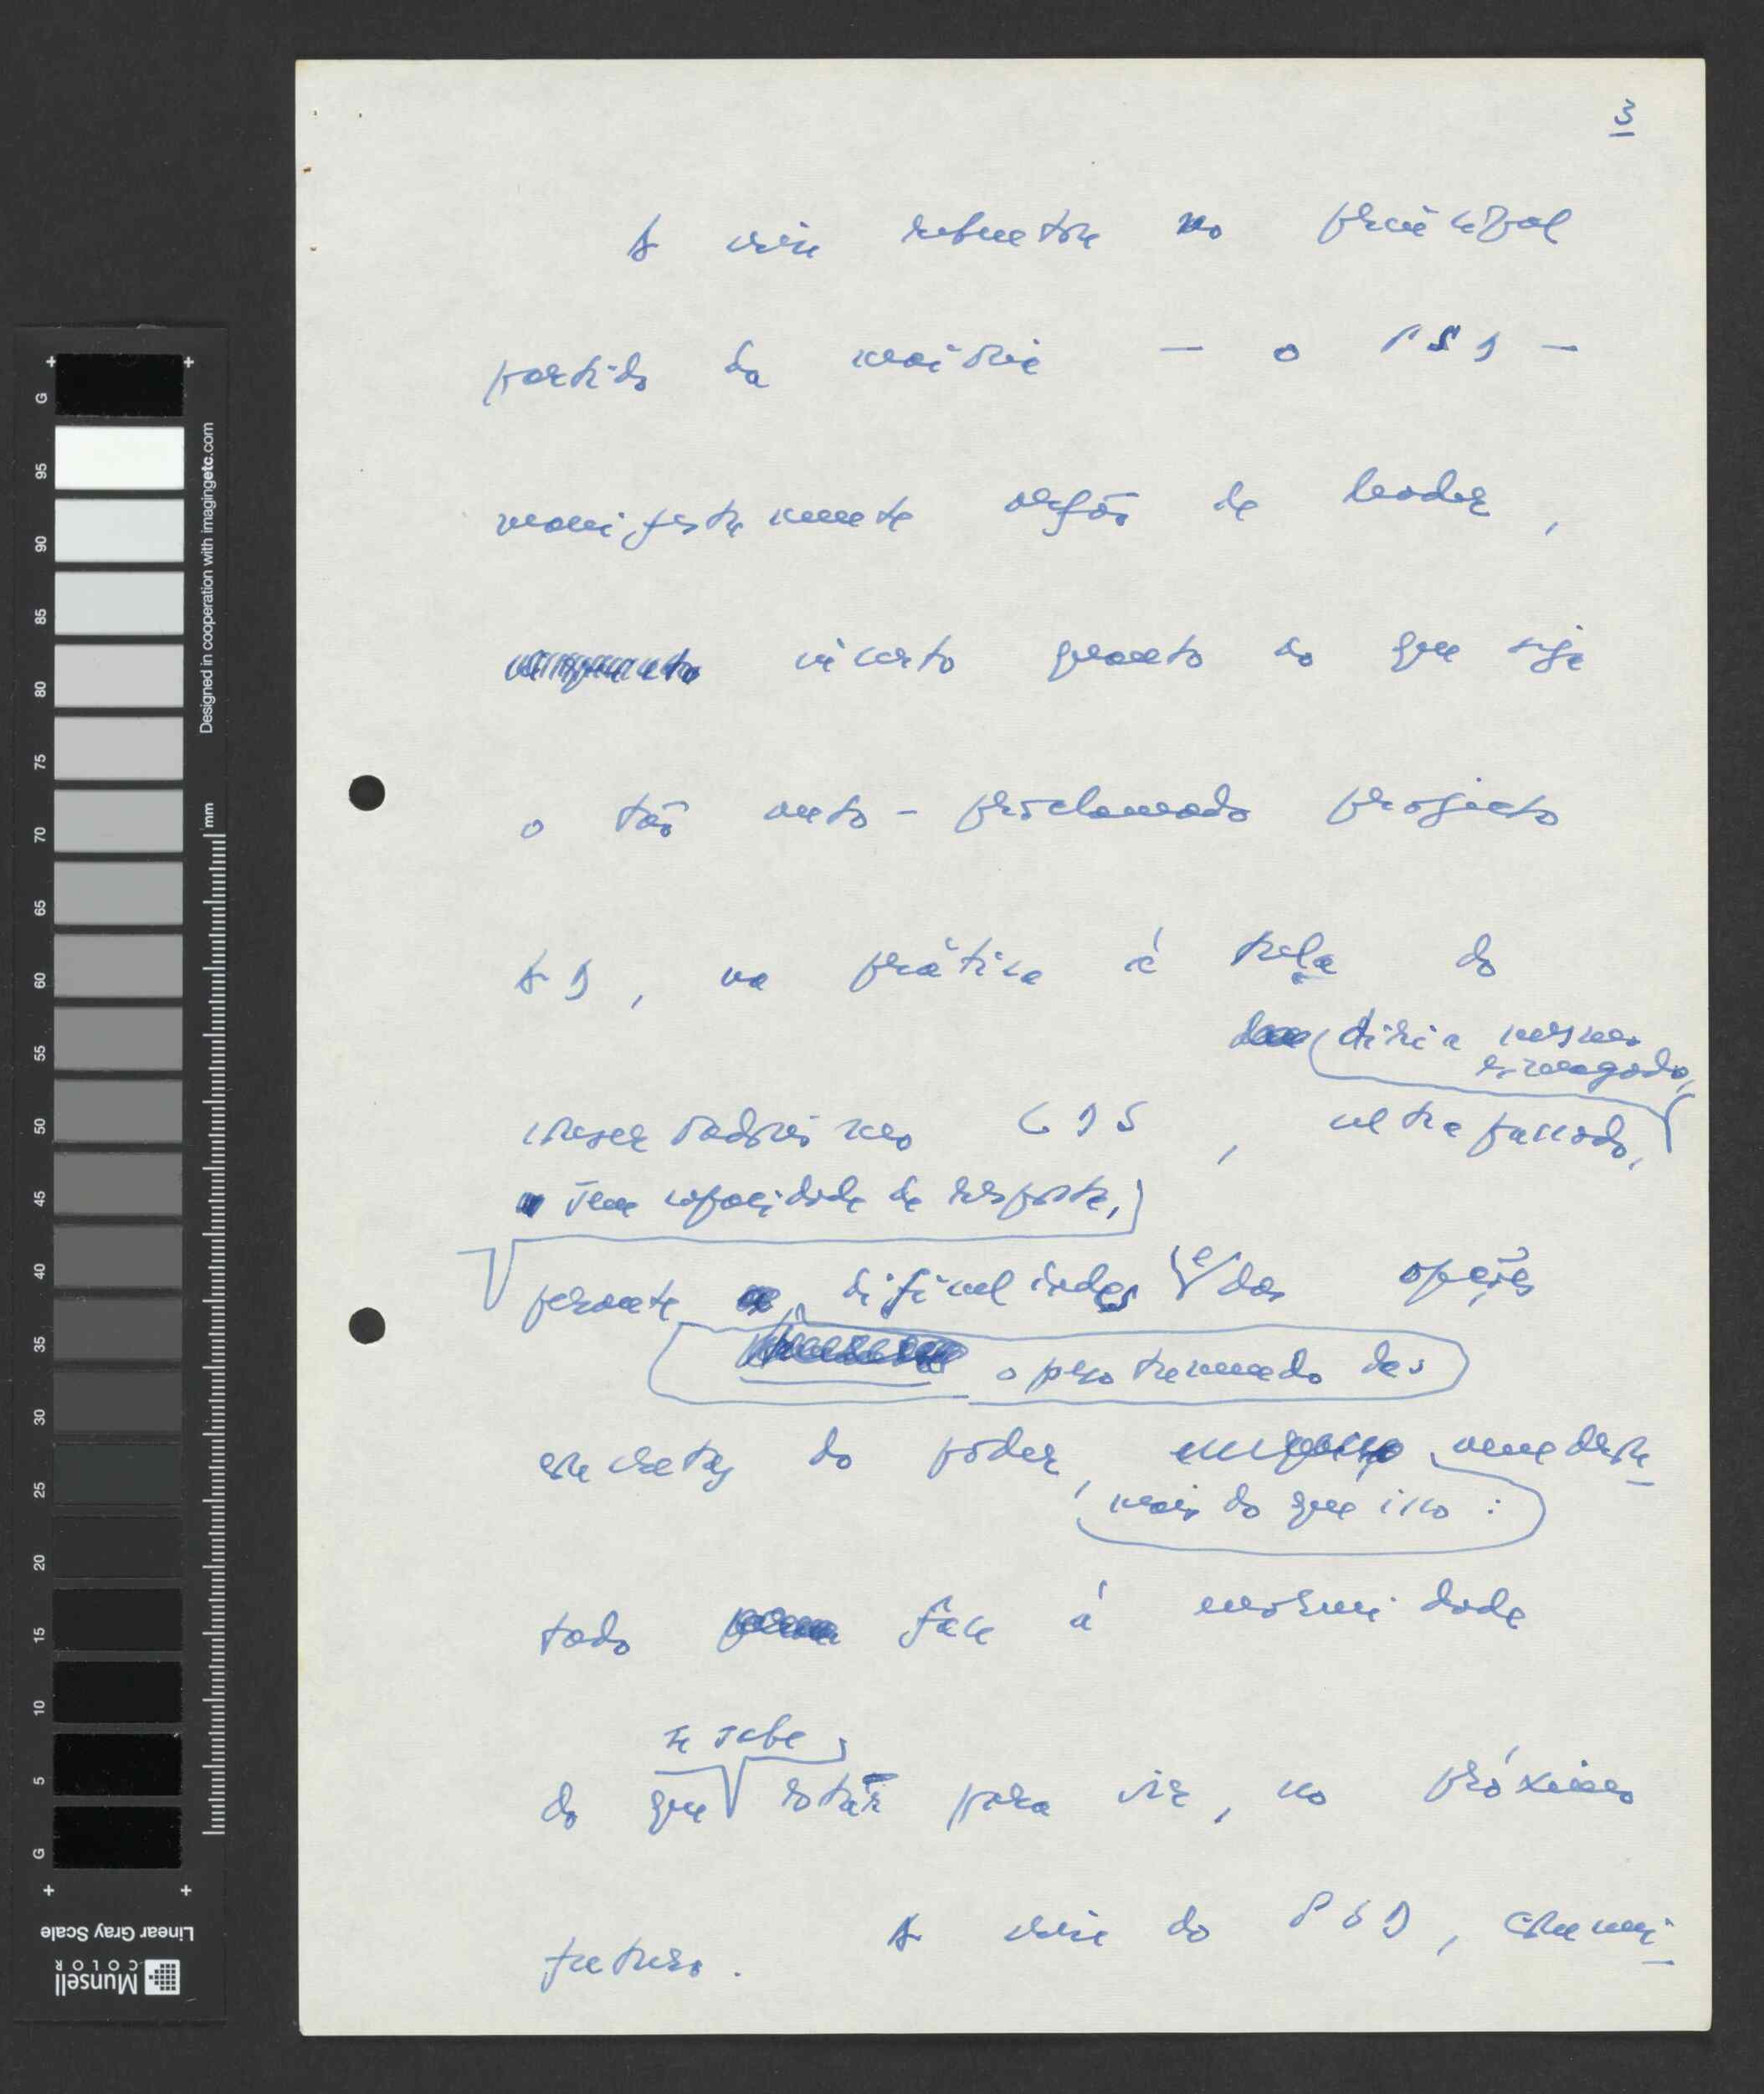 3
A crise rebentou no principal
partido da maioria — o PSD —
manifestamente orfão de leader,
incerto quanto ao que seja
o tão auto-proclamado projecto
AD, na prática à trela do
(diria mesmo
esmagado,
conservadorismo CDS, ultrapassado,
sem capacidade de resposta,
perante dificuldades e das opções
o peso tremendo das
concretas do poder, amedron-
mais do que isso:
tado face à enormidade
se sabe
do que estar para vir, no próximo
futuro. A crise do PSD, comuni-
G
95
90
85
80
75
70
65
60
55
50
45
40
35
30
25
20
15
10
5
G
Designed in cooperation with imagingetc.com
mm
Linear Gray Scale
Munsell
COLOR